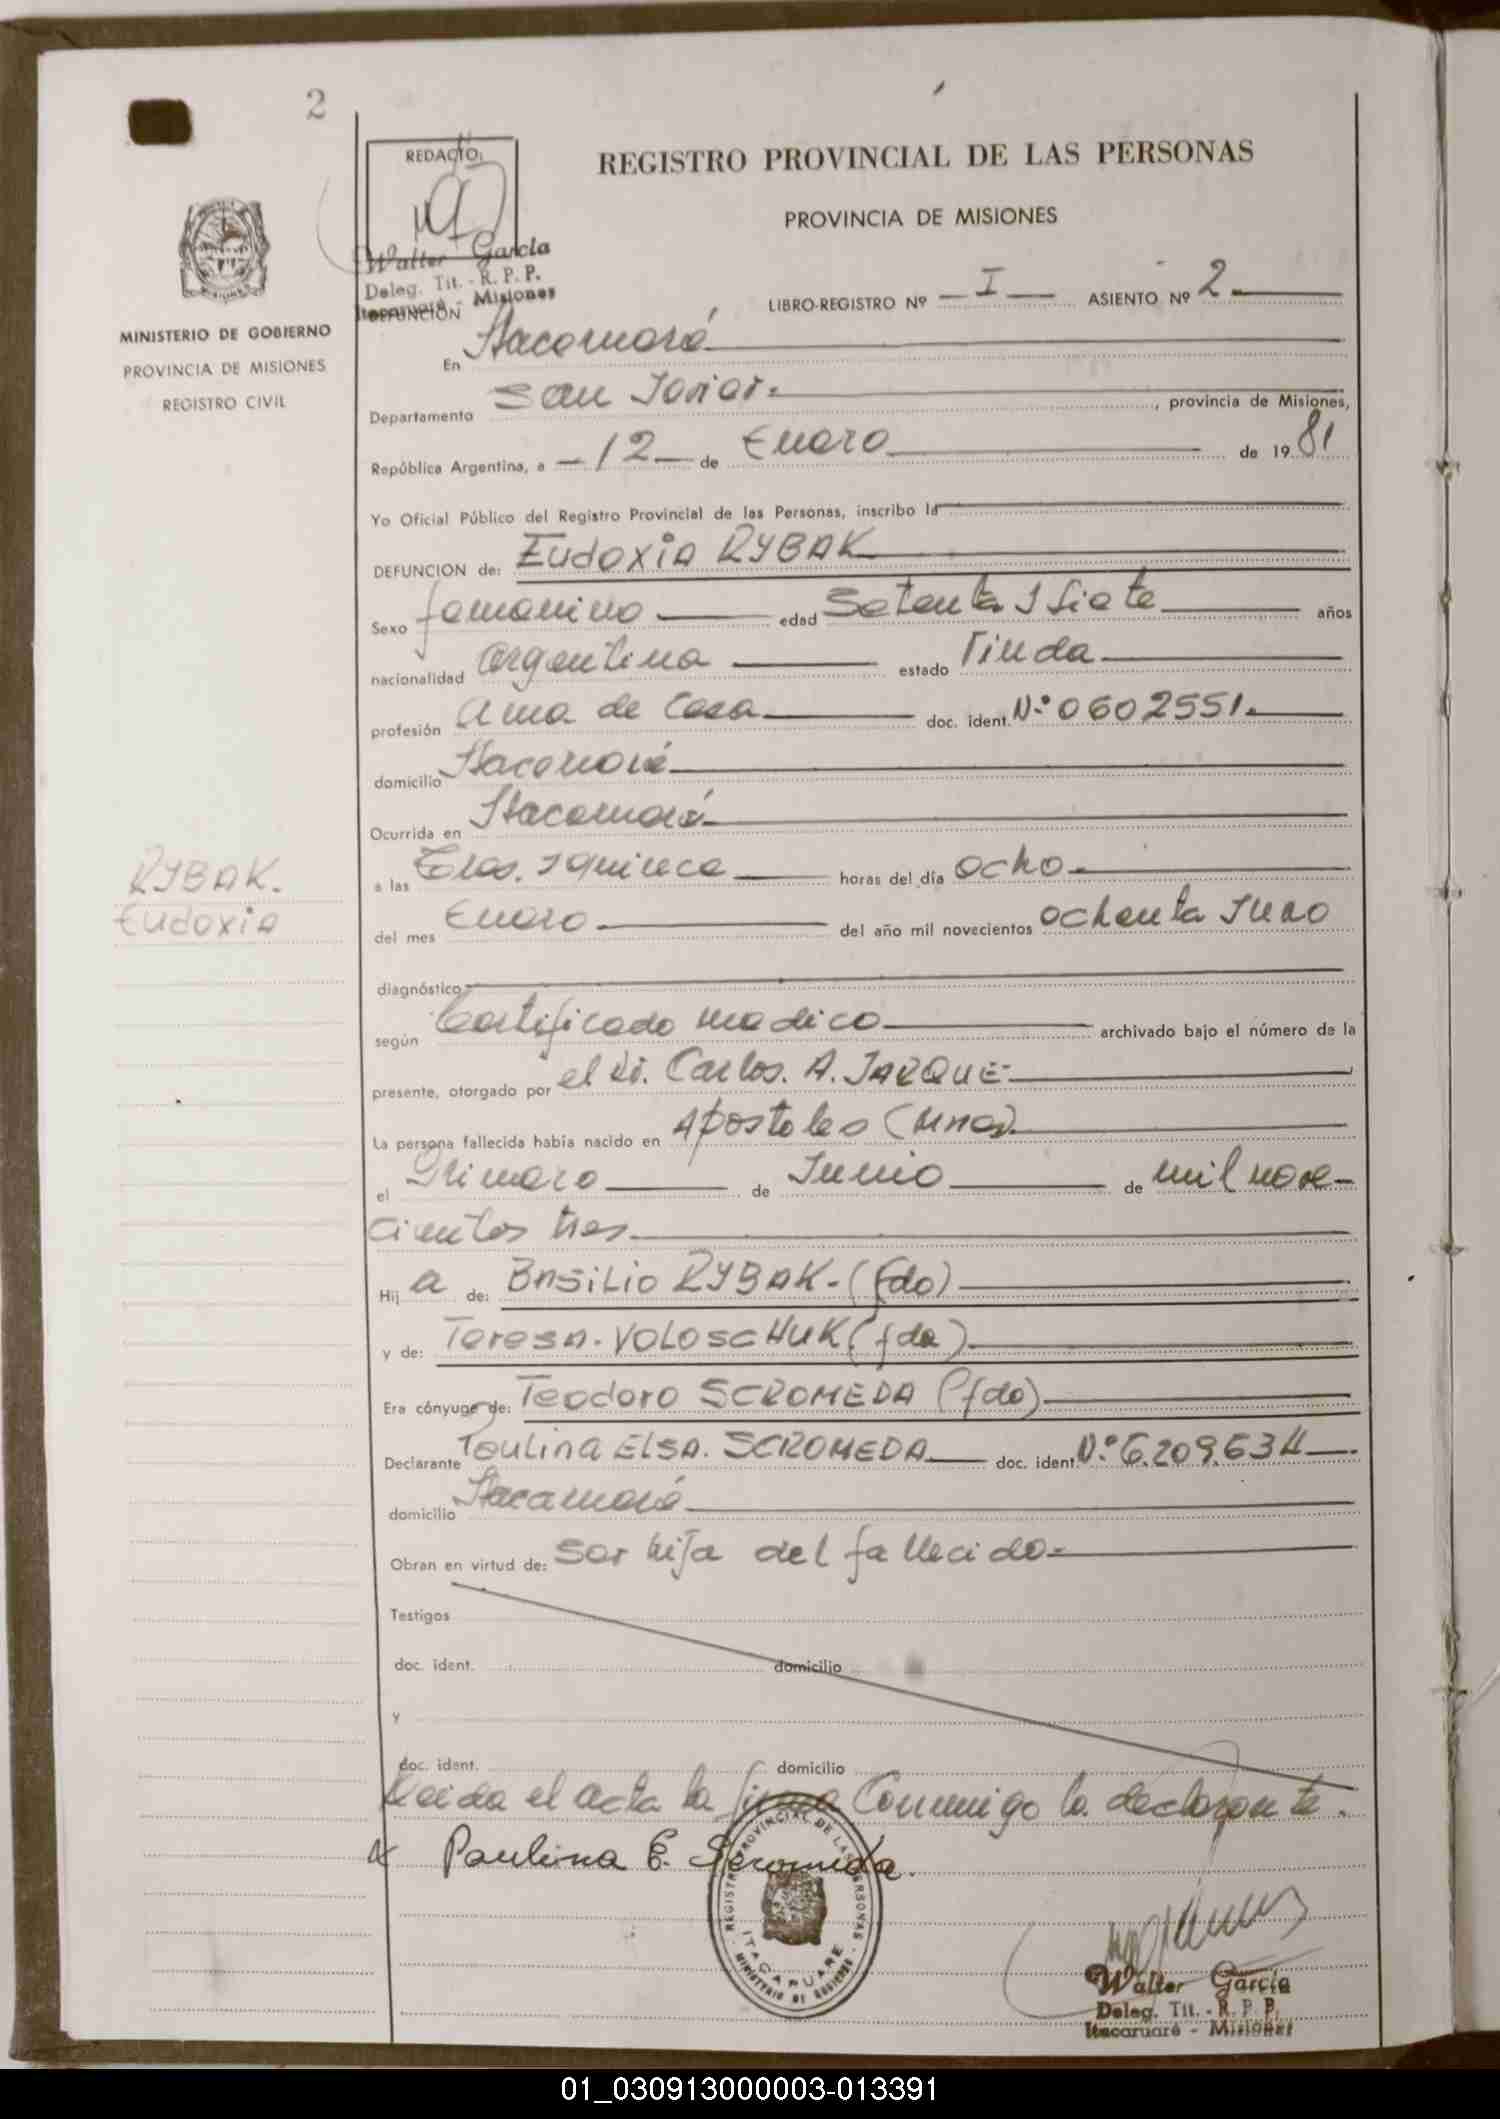 2
REDACTO:
REGISTRO PROVINCIAL DE LAS PERSONAS
PROVINCIA DE MISIONES
Walter García
Deleg. Tit. - R. P. P.
Itacaruaré - Misiones
LIBRO-REGISTRO Nº — I — ASIENTO Nº 2
MINISTERIO DE GOBIERNO
PROVINCIA DE MISIONES
REGISTRO CIVIL
DEFUNCIÓN
En Itacaruaré
Departamento San Javier. , provincia de Misiones,
República Argentina, a — 12 — de Enero de 19 81
Yo Oficial Público del Registro Provincial de las Personas, inscribo la
DEFUNCION de: Eudoxia RYBAK
Sexo femenino edad Setenta y Siete años
nacionalidad argentina estado Viuda
profesión ama de Casa doc. ident. N.º 0602551.
domicilio Itacaruaré
Ocurrida en Itacaruaré
RYBAK.
Eudoxia
a las Tres. y quince horas del día ocho
del mes Enero del año mil novecientos ochenta y uno
diagnóstico
según Certificado medico archivado bajo el número de la
presente, otorgado por el Dr. Carlos. A. JARQUE
La persona fallecida había nacido en Apostoles (Mnes).
el Primero de Junio de mil nove-
cientos tres
Hij a de: Basilio RYBAK - (fdo)
y de: Teresa. VOLOSCHUK (fda)
Era cónyuge de: Teodoro SCROMEDA (fdo)
Declarante Paulina ELSA. SCROMEDA doc. ident. N.º 6.209.634
domicilio Itacaruaré
Obran en virtud de: Ser hija del fallecido
Testigos
doc. ident. domicilio
y
doc. ident. domicilio
Leida el acta la firma Conmigo la declarante.
x Paulina E. Scromeda.
REGISTRO PROVINCIAL DE LAS PERSONAS
ITACARUARE
MINISTERIO DE GOBIERNO
Walter García
Deleg. Tit. - R. P. P.
Itacaruaré - Misiones
01_030913000003-013391